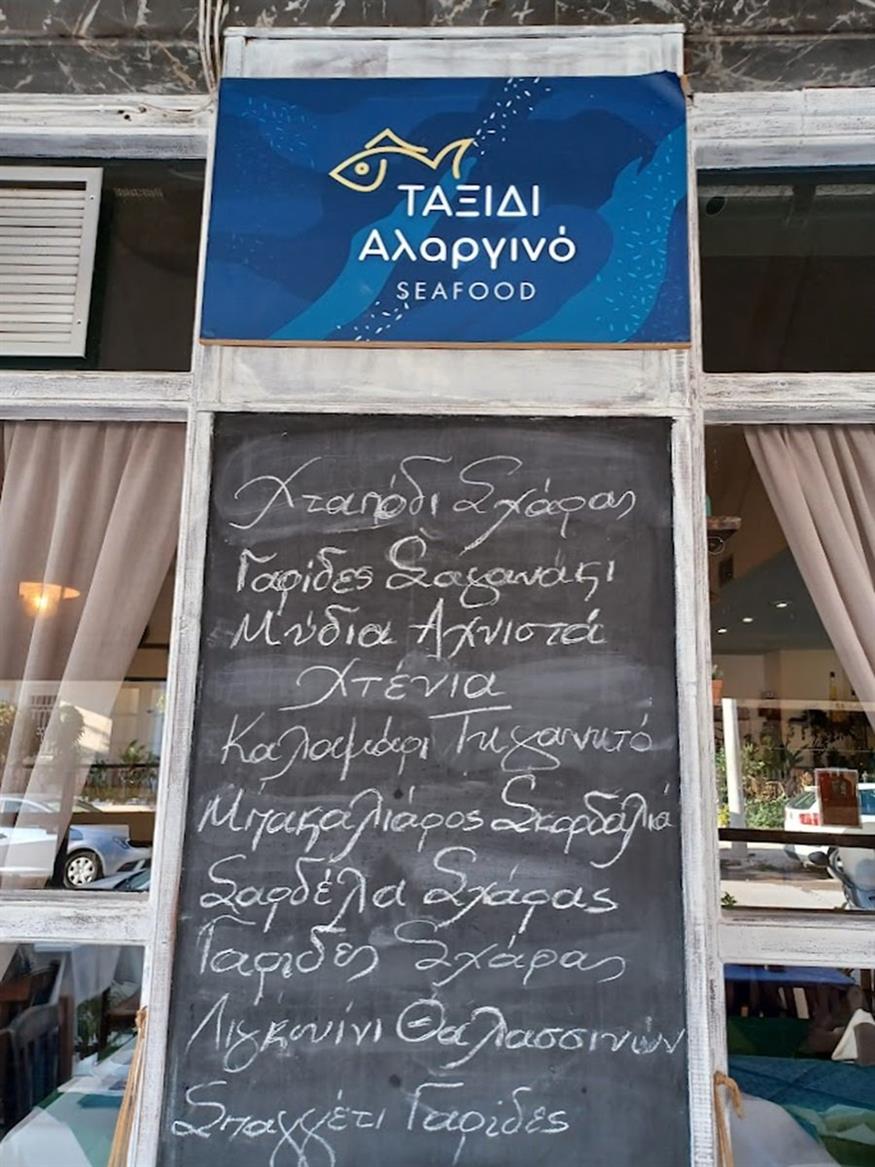 ΤΑΞΙΔΙ
Αλαργινό
SEAFOOD
Χταπόδι Σχάρας
Γαρίδες Σαγανάκι
Μύδια Αχνιστά
Χτένια
Καλαμάρι Τηγανητό
Μπακαλιάρος Σκορδαλιά
Σαρδέλα Σχάρας
Γαρίδες Σχάρας
Λιγκουίνι Θαλασσινών
Σπαγγέτι Γαρίδες